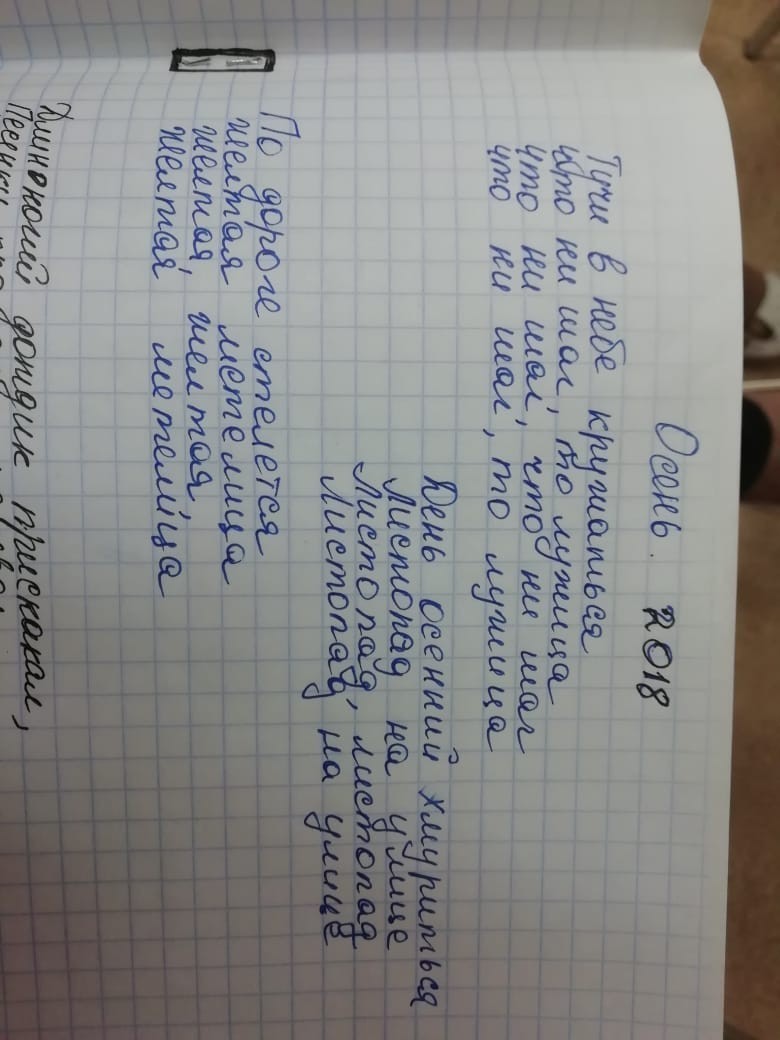 Осень. 2018
Тучи в небе кружаться
что ни шаг, то лужица
что ни шаг, что ни шаг
что ни шаг, то лужица
День осенний хмуриться
Листопад на улице
Листопад, листопад
Листопад на улице
По дороге стелется
желтая метелица
желтая, желтая
желтая метелица
Длиноногий дождик прискакал,